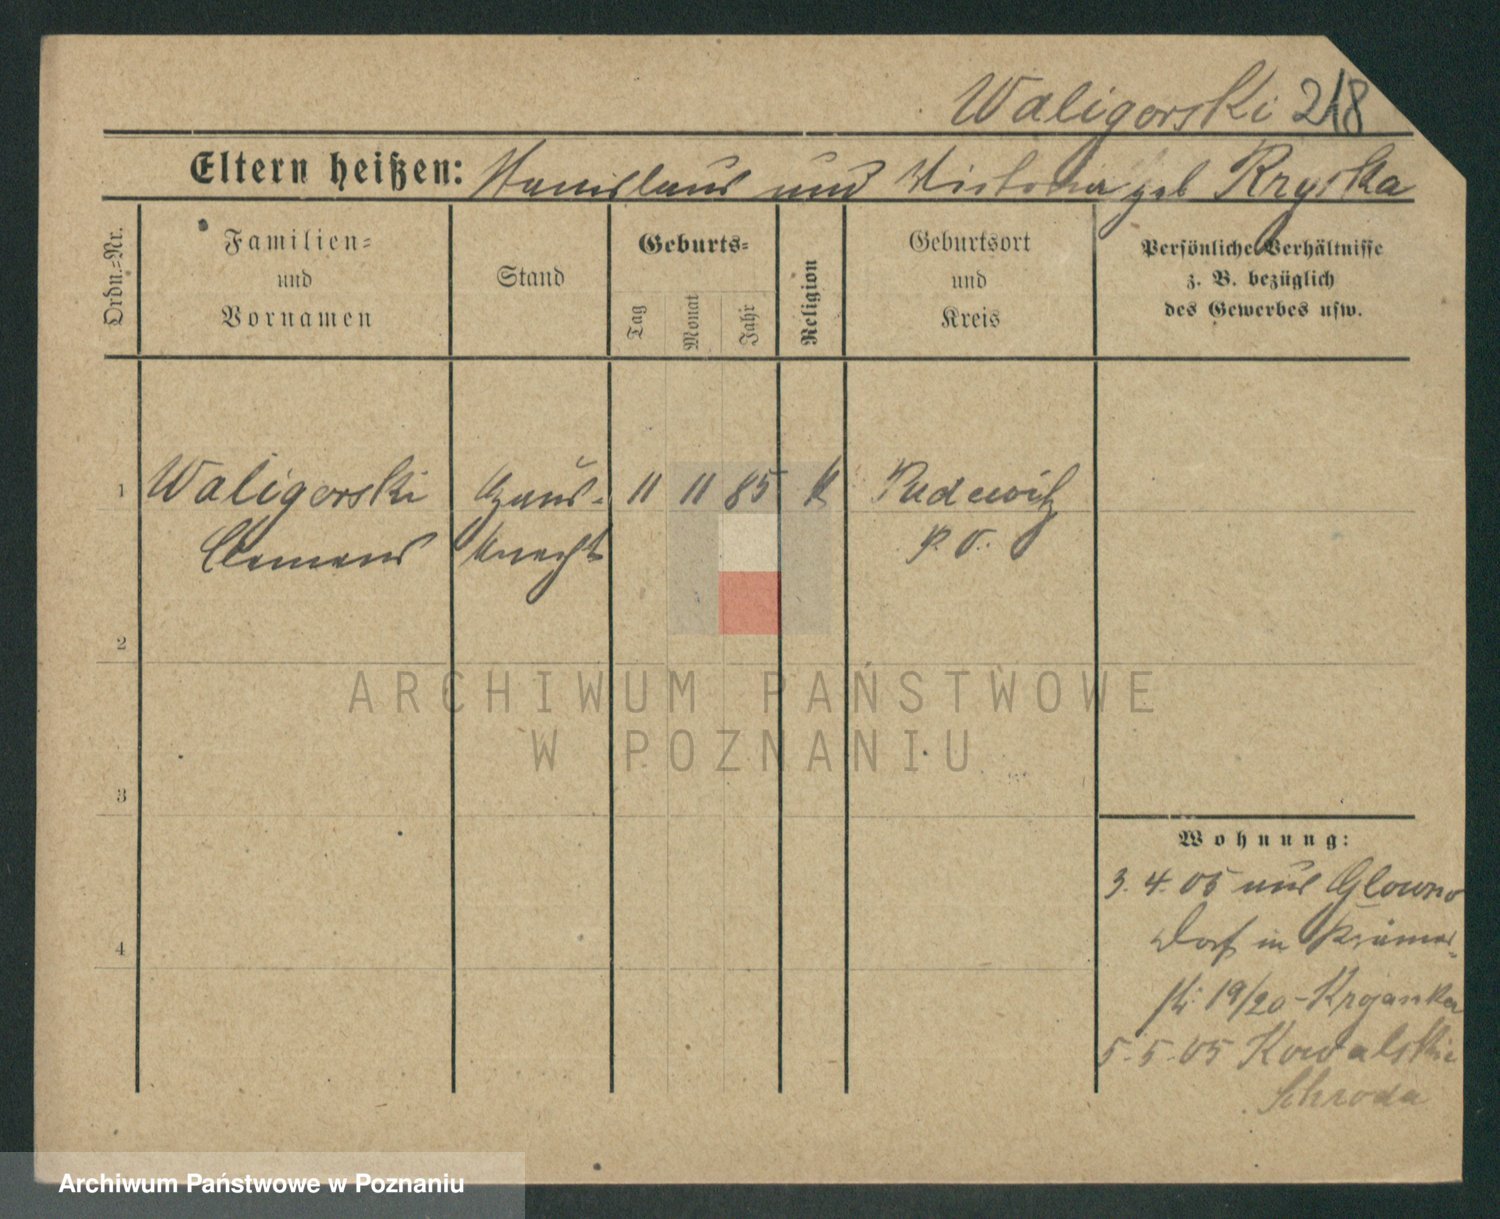 Waligorski 218
Eltern heißen: Stanislaus und Victoria geb Kryska
Ordn.=Nr.
Familien=
und
Vornamen
Stand
Geburts=
Tag
Monat
Jahr
Religion
Geburtsort
und
Kreis
Persönliche Verhältnisse
z. B. bezüglich
des Gewerbes usw.
1 Waligorski Haus- 11 11 85 K Pudewitz
Clemens knecht P. O.
2
3
4
Wohnung:
3. 4. 05 aus Glowno
Dorf in
19/20 -
5. 5. 05 Kowalski
Schroda
ARCHIWUM PAŃSTWOWE
W POZNANIU
Archiwum Państwowe w Poznaniu